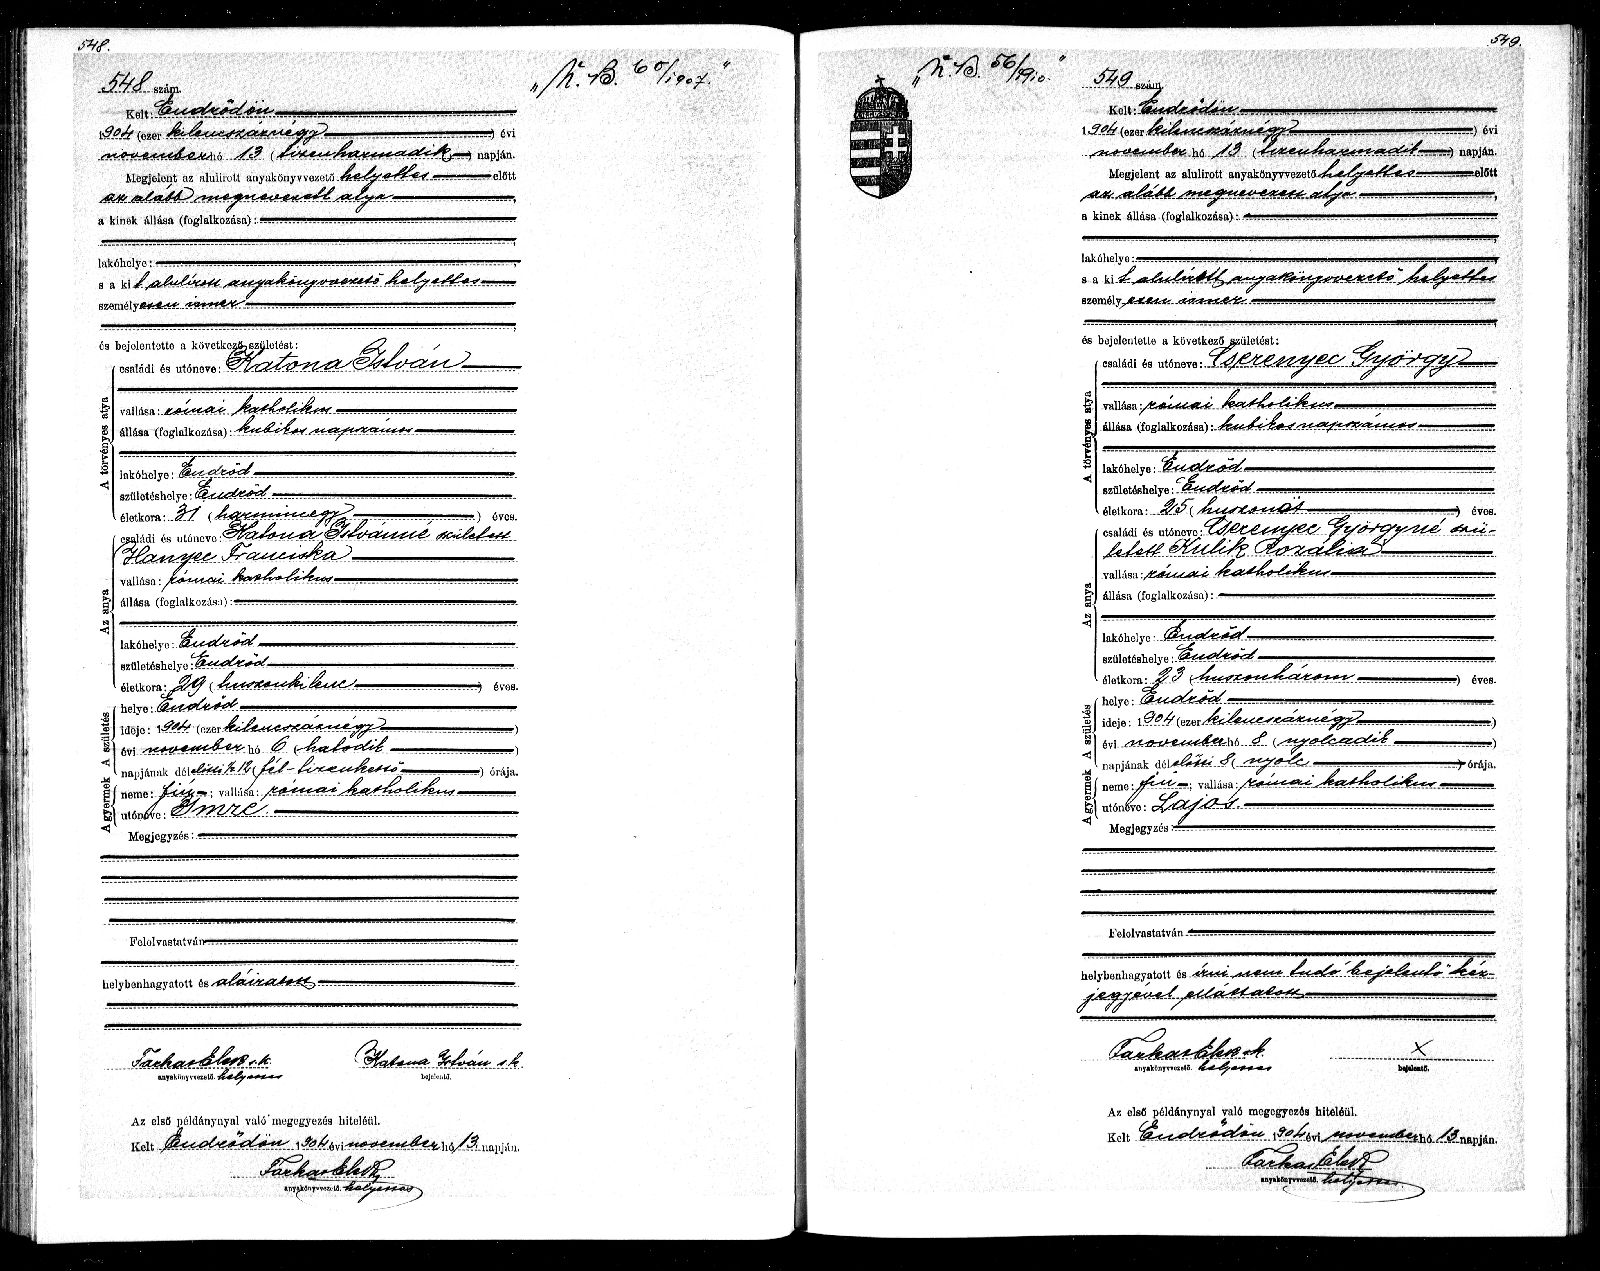 548.
548 szám.
„K. B. 60/1907."
Kelt: Endrődön
1904 (ezer kilencszáznégy) évi
november hó 13 (tizenharmadik) napján.
Megjelent az alulirott anyakönyvvezető helyettes előtt
az alább megnevezett atya,
a kinek állása (foglalkozása):
lakóhelye:
s a kit alulírott anyakönyvvezető helyettes
személyesen ismer
és bejelentette a következő születést:
A törvényes atya
családi és utóneve: Katona István
vallása: római katholikus
állása (foglalkozása): kubikos napszámos
lakóhelye: Endrőd
születéshelye: Endrőd
életkora: 31 (harminegy) éves.
Az anya
családi és utóneve: Katona Istvánné született
Hanyec Franciska
vallása: római katholikus
állása (foglalkozása):
lakóhelye: Endrőd
születéshelye: Endrőd
életkora: 29 (huszonkilenc) éves.
A születés
helye: Endrőd
ideje: 1904 (ezer kilencszáznégy)
évi november hó 6 (hatodik)
napjának délelőtti ½12 (fél-tizenkettő) órája.
A gyermek
neme: fiú; vallása: római katholikus
utóneve: Imre
Megjegyzés:
Felolvastatván
helybenhagyatott és aláiratott
Farkas Elek s.k. Katona István s.k.
anyakönyvvezető. helyettes bejelentő.
Az első példánynyal való megegyezés hiteléül.
Kelt Endrődön 1904 évi november hó 13 napján.
Farkas Elek
anyakönyvvezető. helyettes
549.
„K. B. 56/1910"
549 szám.
Kelt: Endrődön
1904 (ezer kilencszáznégy) évi
november hó 13 (tizenharmadik) napján.
Megjelent az alulirott anyakönyvvezető helyettes előtt
az alább megnevezett atya,
a kinek állása (foglalkozása):
lakóhelye:
s a kit alulírott anyakönyvvezető helyettes
személyesen ismer
és bejelentette a következő születést:
A törvényes atya
családi és utóneve: Cserenyec György
vallása: római katholikus
állása (foglalkozása): kubikos napszámos
lakóhelye: Endrőd
születéshelye: Endrőd
életkora: 25 (huszonöt) éves.
Az anya
családi és utóneve: Cserenyec Györgyné szü-
letett Kulik Rozália
vallása: római katholikus
állása (foglalkozása):
lakóhelye: Endrőd
születéshelye: Endrőd
életkora: 23 (huszonhárom) éves.
A születés
helye: Endrőd
ideje: 1904 (ezer kilencszáznégy)
évi november hó 8 (nyolcadik)
napjának délelőtti 8 (nyolc) órája.
A gyermek
neme: fiú; vallása: római katholikus
utóneve: Lajos
Megjegyzés:
Felolvastatván
helybenhagyatott és írni nem tudó bejelentő kéz-
jegyével elláttatott
Farkas Elek s.k. X
anyakönyvvezető. helyettes bejelentő.
Az első példánynyal való megegyezés hiteléül.
Kelt Endrődön 1904 évi november hó 13 napján.
Farkas Elek
anyakönyvvezető. helyettes